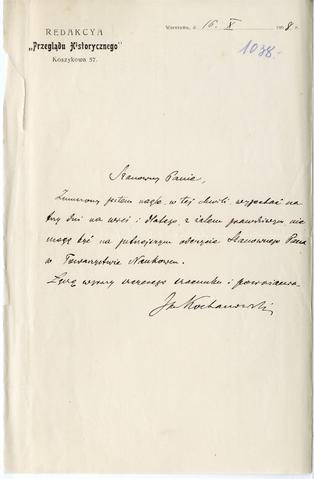 REDAKCYA
„Przeglądu Historycznego”
Koszykowa 57.
Warszawa, d. 16. X 1908 r.
1038.-
Szanowny Panie,
Zmuszony jestem nagle, w tej chwili, wyjechać na
trzy dni na wieś i dlatego, z żalem prawdziwym nie
mogę być na jutrzejszym odczycie Szanownego Pana
w Towarzystwie Naukowem.
Łączę wyrazy szczerego szacunku i poważania
J Kochanowski